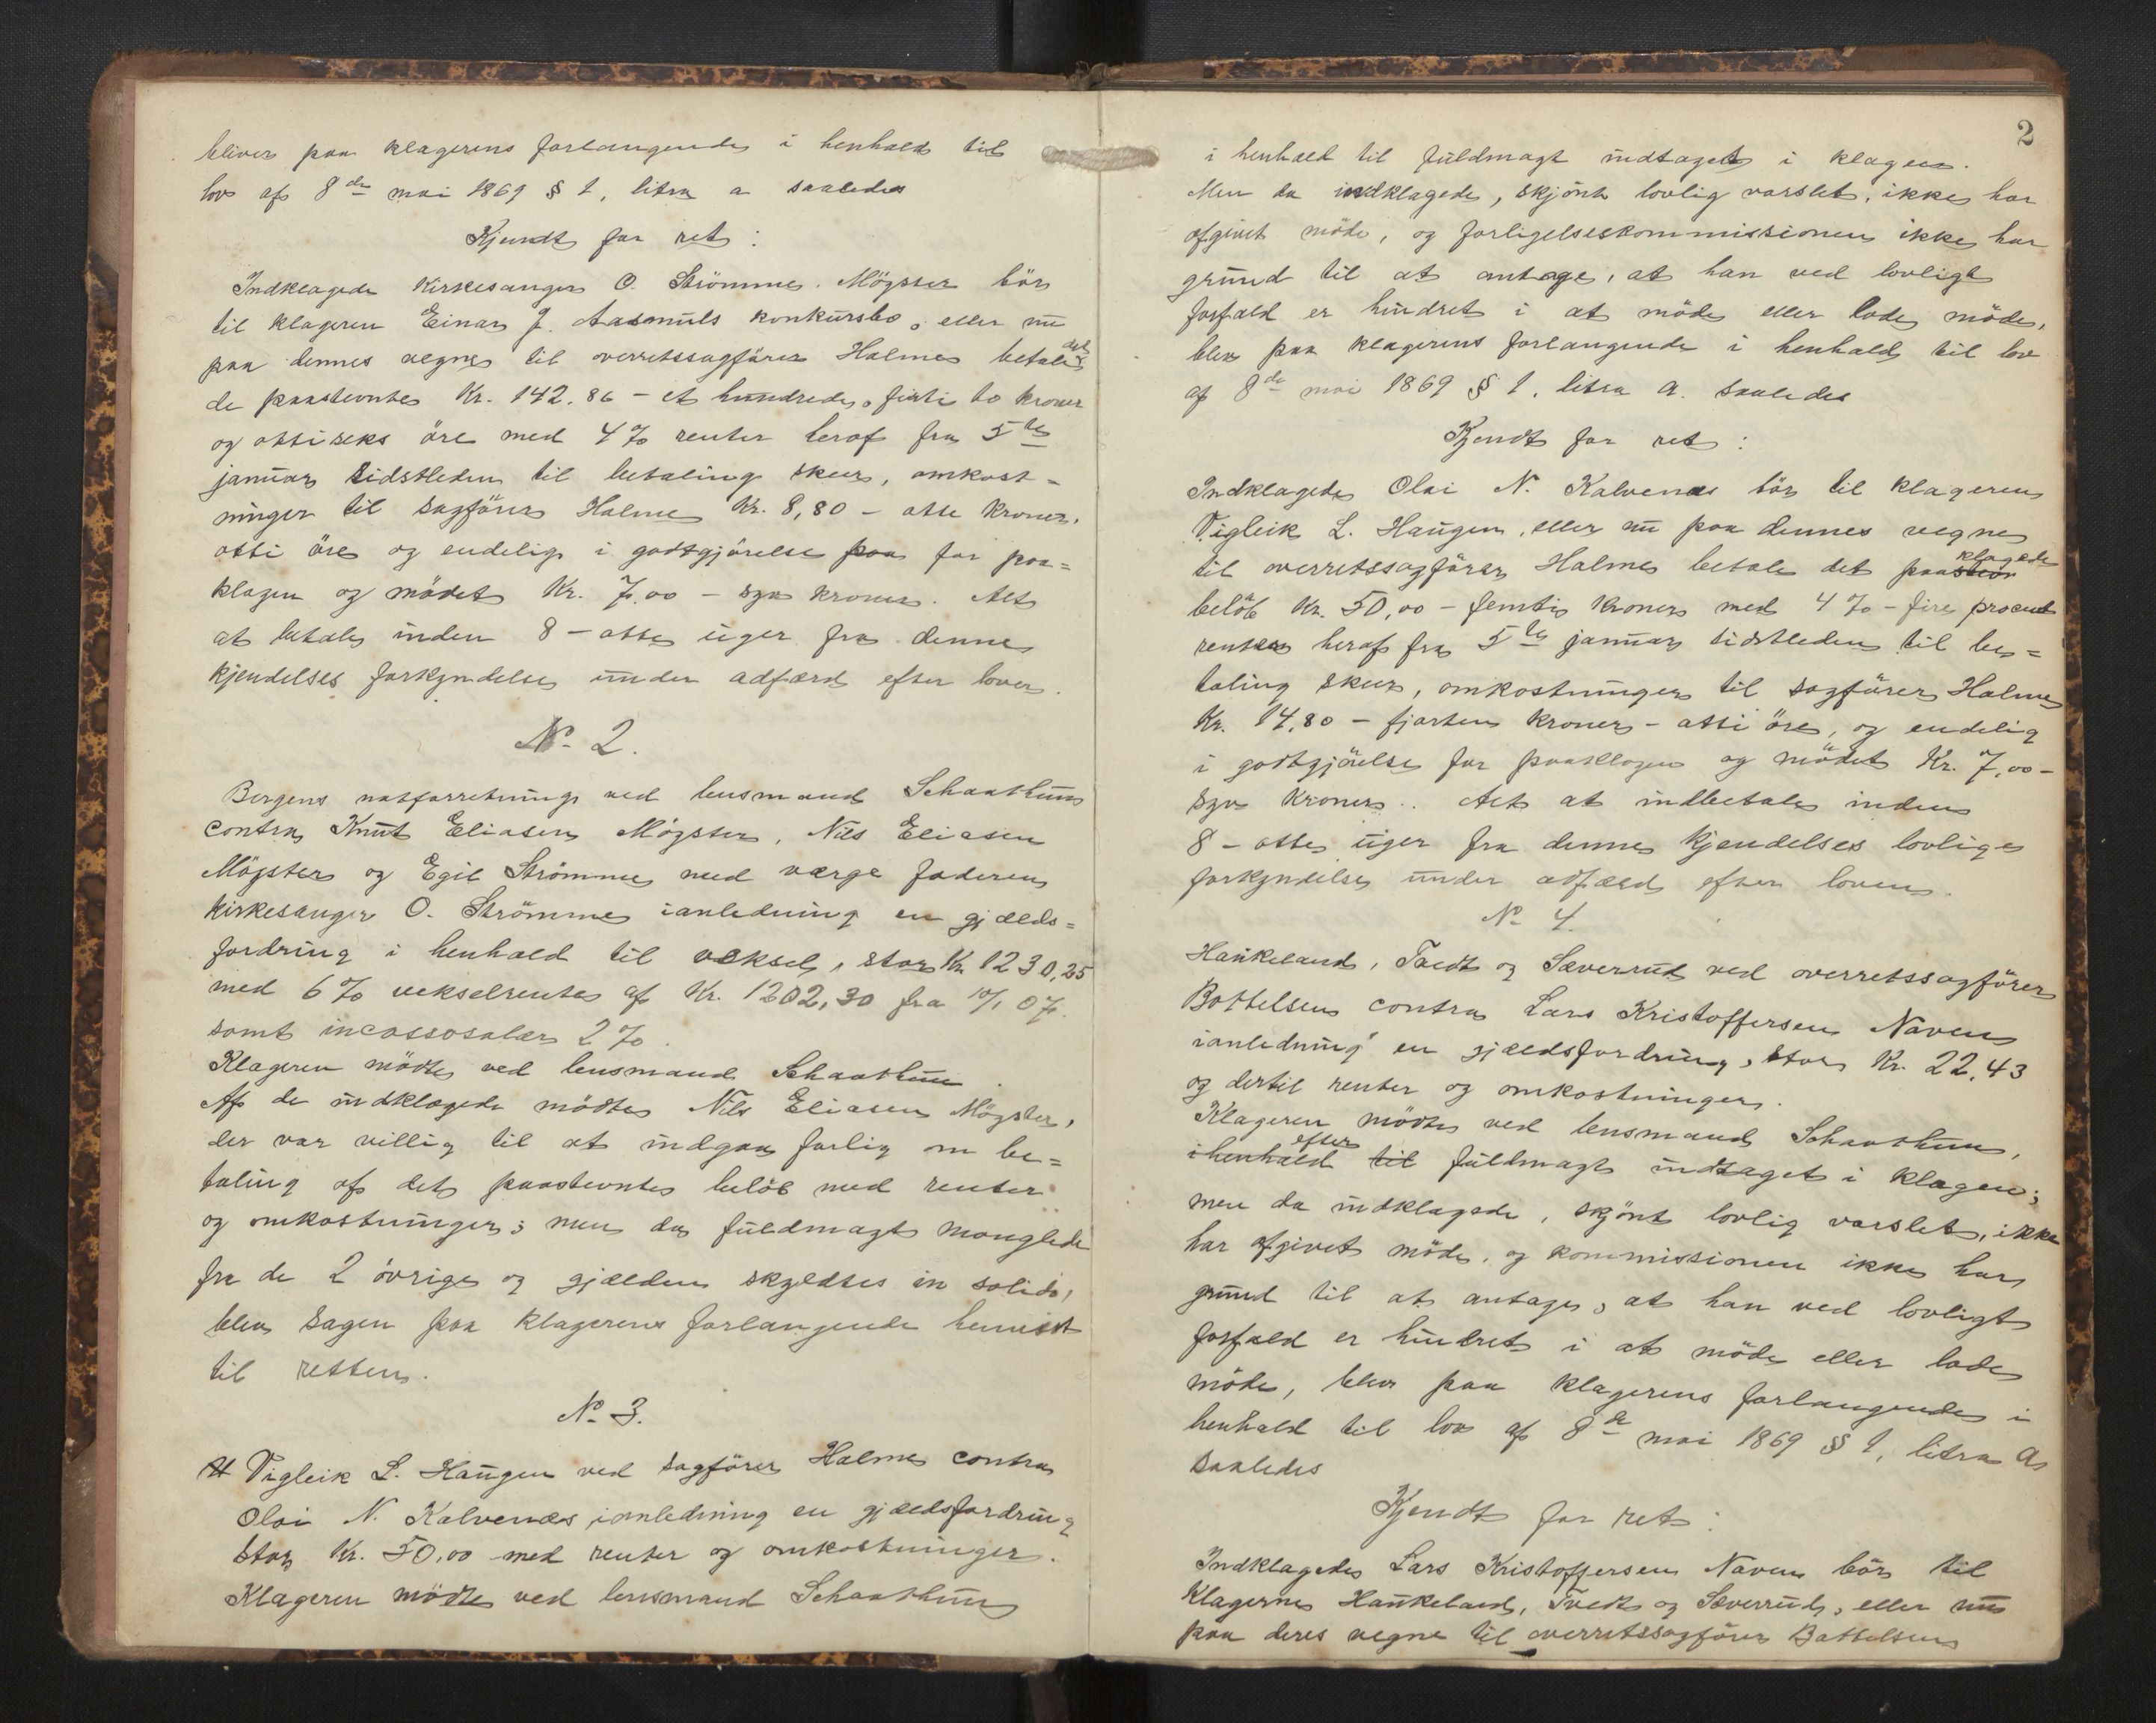 bliver paa klagerens forlangende i henhold til
lov af 8de mai 1869 § 1, litra a saaledes
Kjendt for ret:
Indklagede kirkesanger O. Strömme, Mögster bör
til klageren Einar J. Aasmuls konkursbo, eller nu
paa dennes vegne til overretssagförer Holme betale det
de paastevnte Kr. 142,86 - et hundrede, firti to kroner
og ottiseks öre med 4 % renter heraf fra 5te
januar sidstleden til betaling skeer, omkost-
ninger til sagförer Holme Kr. 8,80 - otte kroner,
otti öre og endelig i godtgjörelse paa for paa=
klagen og mödet Kr. 7,00 - syv kroner. Alt
at betale inden 8 - otte uger fra denne
kjendelses forkyndelse under adfærd efter loven.
No 2.
Bergens notforretning ved lensmand Schaathun
contra Knut Eliasen Mögster, Nils Eliasen
Mögster og Egil Strömme med værge faderen
kirkesanger O. Strömme ianledning en gjælds=
fordring i henhold til veksel, stor Kr. 1230,25
med 6 % vekselrente af Kr. 1202,30 fra 10/1 07.
samt incassosalær 2 %.
Klageren mödte ved lensmand Schaathun.
Af de indklagede mödte Nils Eliasen Mögster,
der var villig til at indgaa forlig om be=
taling af det paastevnte belöb med renter
og omkostninger; men da fuldmagt manglede
fra de 2 övrige og gjælden skyldtes in solido,
blev sagen paa klagerens forlangende henvist
til retten.
No 3.
Vigleik L. Haugen ved sagförer Holme contra
Olai N. Kalvenæs ianledning en gjældsfordring
stor Kr. 50,00 med renter og omkostninger.
Klageren mödte ved lensmand Schaathun
2
i henhold til fuldmagt indtaget i klagen.
Men da indklagede, skjönt lovlig varslet, ikke har
afgivet möde, og forligelseskommissionen ikke har
grund til at antage, at han ved lovligt
forfald er hindret i at möde eller lade möde,
blev paa klagerens forlangende i henhold til lov
af 8de mai 1869 § 1, litra a. saaledes
Kjendt for ret:
Indklagede Olai N. Kalvenæs bör til klageren
Vigleik L. Haugen, eller nu paa dennes vegne
til overretssagförer Holme betale det paastevn klagede
belöb Kr. 50,00 - femtig kroner med 4 % - fire procent
renter heraf fra 5te januar sidstleden til be=
taling skeer, omkostninger til sagförer Holme
Kr. 14,80 - fjorten kroner - otti öre, og endelig
i godtgjörelse for paaklagen og mödet Kr. 7,00 -
syv kroner. Alt at indbetale inden
8 - otte uger fra dennes kjendelses lovlige
forkyndelse under adfærd efter loven.
No 4.
Haukeland, Tvedt og Sæverud ved overretssagförer
Bottelsen contra Lars Kristoffersen Naven
ianledning en gjældsfordring, stor Kr. 22,43
og dertil renter og omkostninger.
Klageren mödte ved lensmand Schaathun,
ihenhold til efter fuldmagt indtaget i klagen;
men da indklagede, skjönt lovlig varslet, ikke
har afgivet möde, og kommissionen ikke har
grund til at antage, at han ved lovligt
forfald er hindret i at möde eller lade
möde, blev paa klagerens forlangende i
henhold til lov af 8de mai 1869 § 1, litra a
saaledes
Kjendt for ret:
Indklagede Lars Kristoffersen Naven bör til
klagerne Haukeland, Tvedt og Sæverud, eller nu
paa deres vegne til overretssagförer Bottelsen